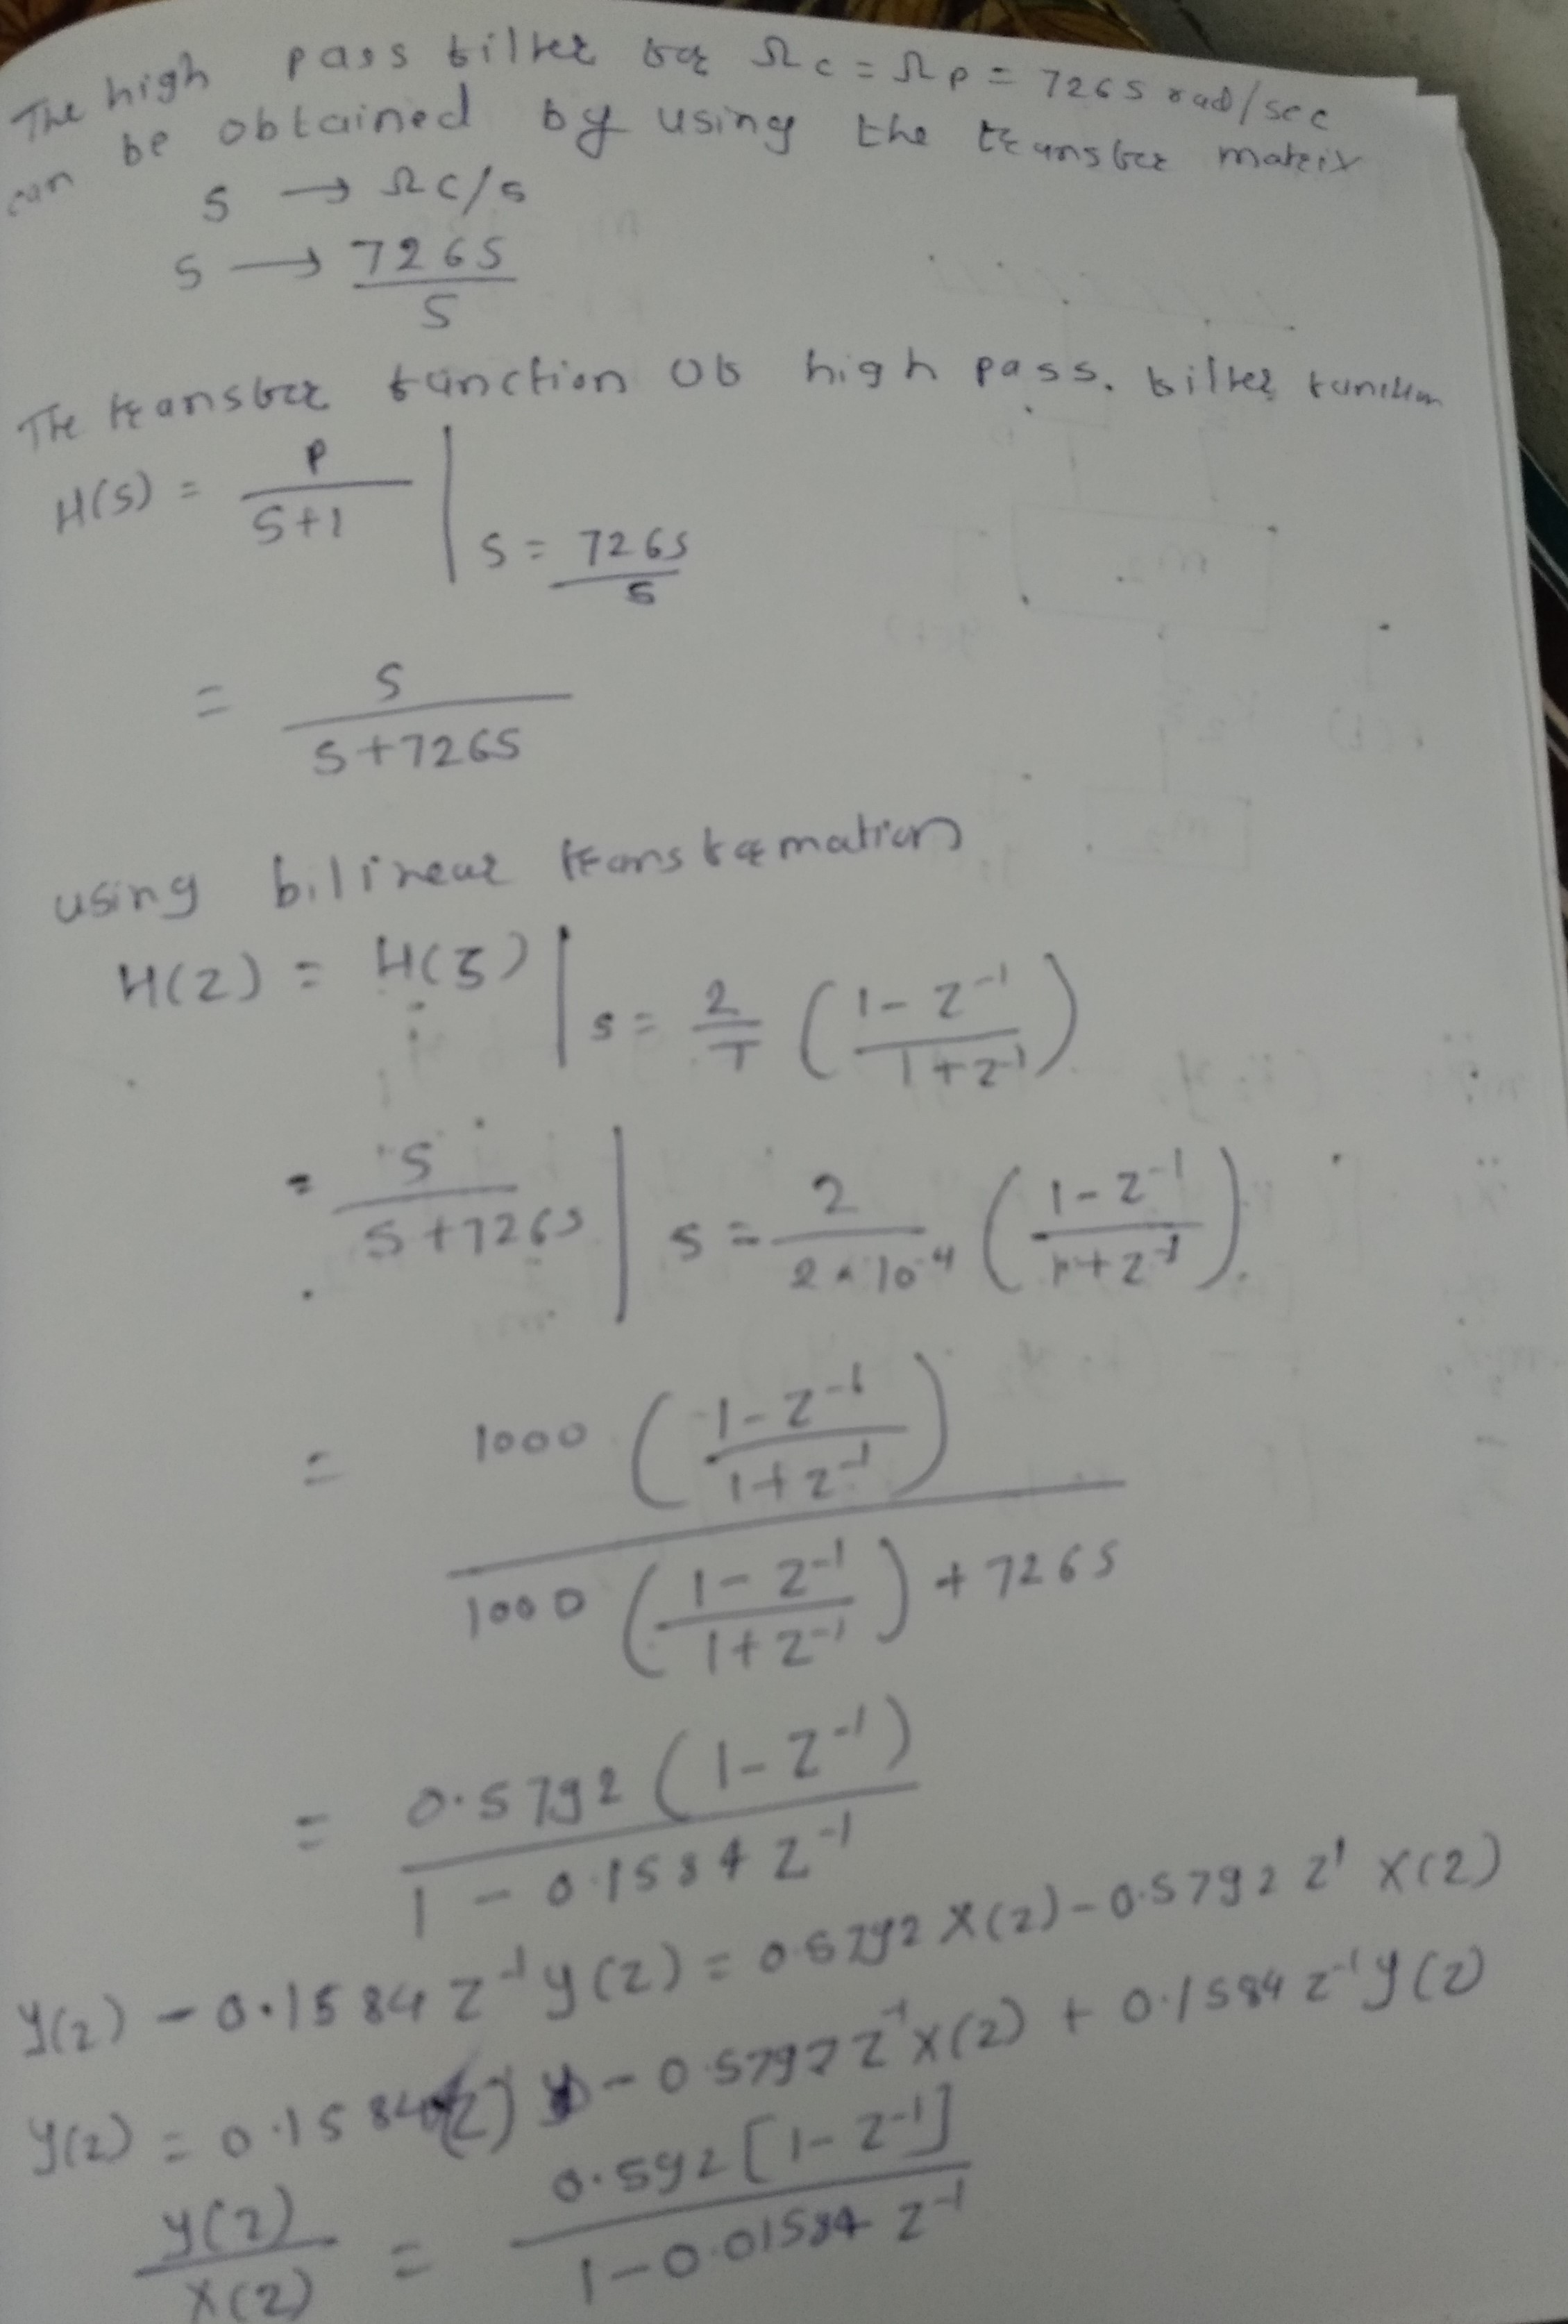 The high pass filter for Ωc = Ωp = 7265 rad/sec
can be obtained by using the transfer matrix
S → Ωc/s
S → 7265/S
The transfer function of high pass. filter function
H(S) = P/(S+1) | S = 7265/S
= S/(S+7265)
using bilinear transformation
H(Z) = H(S) | s = 2/T ((1-Z⁻¹)/(1+Z⁻¹))
= S/(S+7265) | S = 2/(2×10⁻⁴) ((1-Z⁻¹)/(1+Z⁻¹))
= 1000 ((1-Z⁻¹)/(1+Z⁻¹)) / (1000 ((1-Z⁻¹)/(1+Z⁻¹)) + 7265)
= 0.5792 (1-Z⁻¹) / (1-0.1584 Z⁻¹)
Y(Z) - 0.1584 Z⁻¹ Y(Z) = 0.5792 X(Z) - 0.5792 Z¹ X(Z)
Y(Z) = 0.1584 - 0.5792 Z⁻¹ X(Z) + 0.1584 Z⁻¹ Y(Z)
Y(Z)/X(Z) = 0.592 [1-Z⁻¹] / (1-0.01584 Z⁻¹)